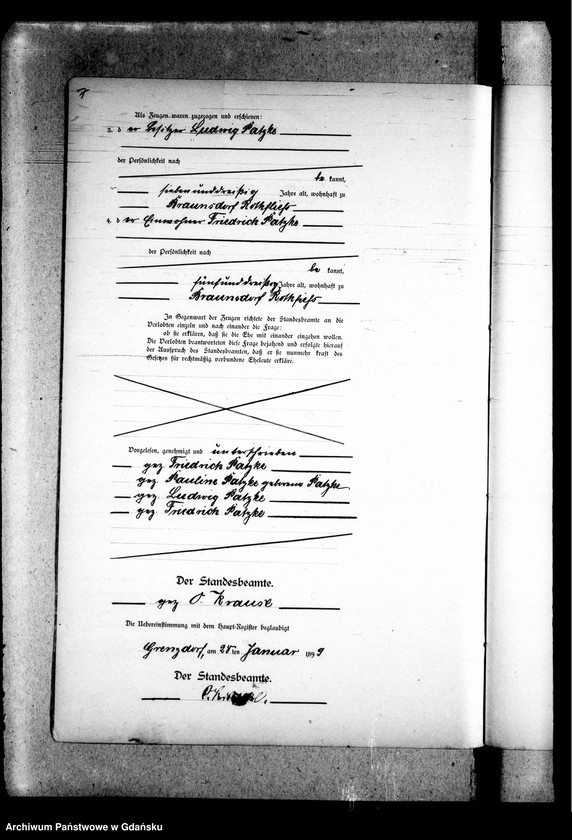 Als Zeugen waren zugezogen und erschienen:
3. der Besitzer Ludwig Patzke
der Persönlichkeit nach
be kannt,
siebenunddreißig Jahre alt, wohnhaft zu
Braunsdorf Rothfließ
4. der Einwohner Friedrich Patzke
der Persönlichkeit nach
be kannt,
fünfunddreißig Jahre alt, wohnhaft zu
Braunsdorf Rothfließ
In Gegenwart der Zeugen richtete der Standesbeamte an die
Verlobten einzeln und nach einander die Frage:
ob sie erklären, daß sie die Ehe mit einander eingehen wollen.
Die Verlobten beantworteten diese Frage bejahend und erfolgte hierauf
der Ausspruch des Standesbeamten, daß er sie nunmehr kraft des
Gesetzes für rechtmäßig verbundene Eheleute erkläre.
Vorgelesen, genehmigt und unterschrieben
gez Friedrich Patzke
gez Pauline Patzke geborene Patzke
gez Ludwig Patzke
gez Friedrich Patzke
Der Standesbeamte.
gez O. Krause
Die Uebereinstimmung mit dem Haupt-Register beglaubigt
Grenzdorf, am 28ten Januar 1899
Der Standesbeamte.
Archiwum Państwowe w Gdańsku